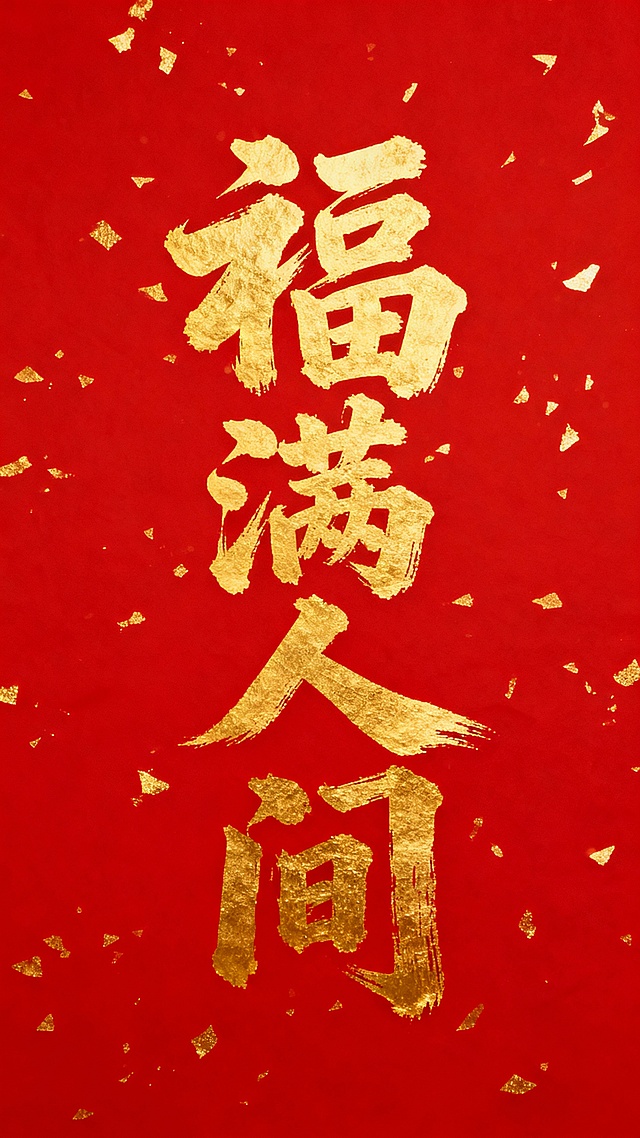 福满人间